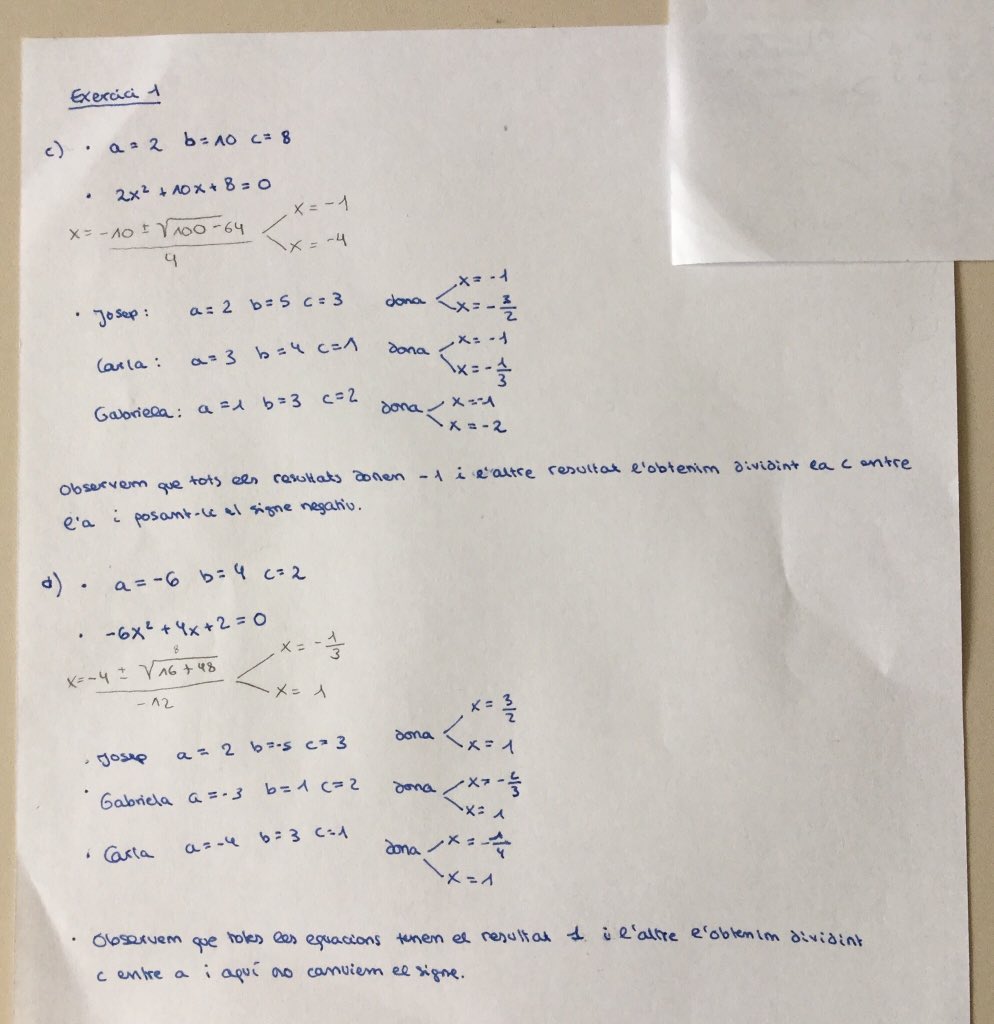 Exercici 1
c) • a = 2 b = 10 c = 8
• 2x² + 10x + 8 = 0
x = -10 ± √100 - 64 / 4 x = -1 x = -4
• Josep: a = 2 b = 5 c = 3 dona x = -1 x = -3/2
Carla: a = 3 b = 4 c = 1 dona x = -1 x = -1/3
Gabriela: a = 1 b = 3 c = 2 dona x = -1 x = -2
Observem que tots els resultats donen -1 i l'altre resultat l'obtenim dividint la c entre
l'a i posant-le el signe negatiu.
d) • a = -6 b = 4 c = 2
• -6x² + 4x + 2 = 0
x = -4 ± √16 + 48 / -12 8 x = -1/3 x = 1
• Josep a = 2 b = -5 c = 3 dona x = 3/2 x = 1
• Gabriela a = -3 b = 1 c = 2 dona x = -2/3 x = 1
• Carla a = -4 b = 3 c = 1 dona x = -1/4 x = 1
• Observem que totes les equacions tenem el resultat 1 i l'altre l'obtenim dividint
c entre a i aquí no canviem el signe.